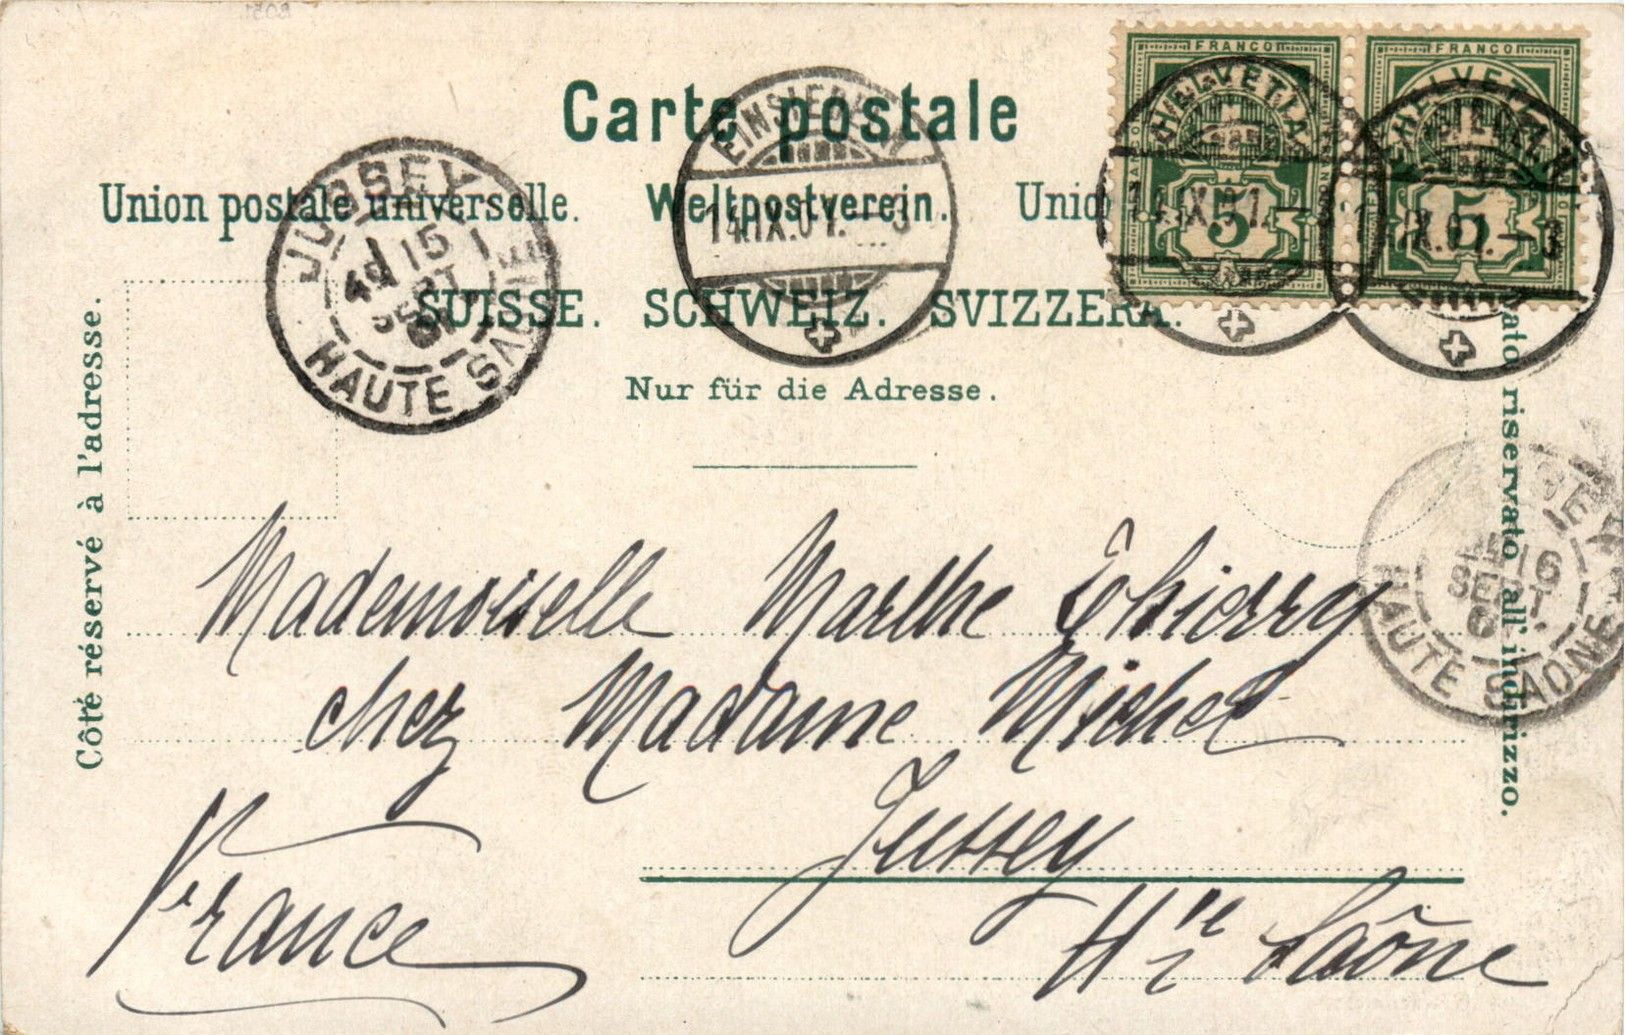 Carte postale
Union postale universelle. Weltpostverein. Unio
SUISSE. SCHWEIZ. SVIZZERA.
Nur für die Adresse.
Côté réservé à l'adresse.
riservato all'indirizzo.
FRANCO
HELVETIA
5
FRANCO
HELVETIA
5
EINSIEDELN
14.IX.01.–3
14.IX.01.–3
IX.01.–3
JUSSEY
15
SEPT
HAUTE SAONE
16
SEPT.
HAUTE SAONE
Mademoiselle Marthe Thierry
chez Madame Michel
Jussey
Hte Saône
France